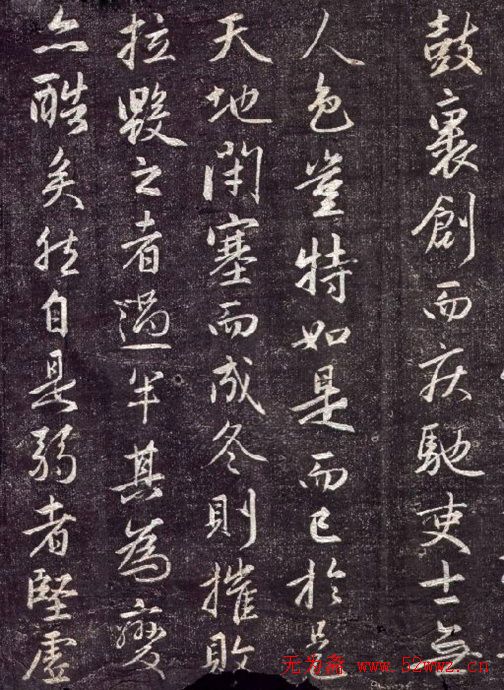 鼓裹創而疾馳吏士無
人色豈特如是而已於是
天地閉塞而成冬則摧敗
拉毀之者過半其為變
亦酷矣然自是弱者堅虛
无为斋 www.52wwz.cn